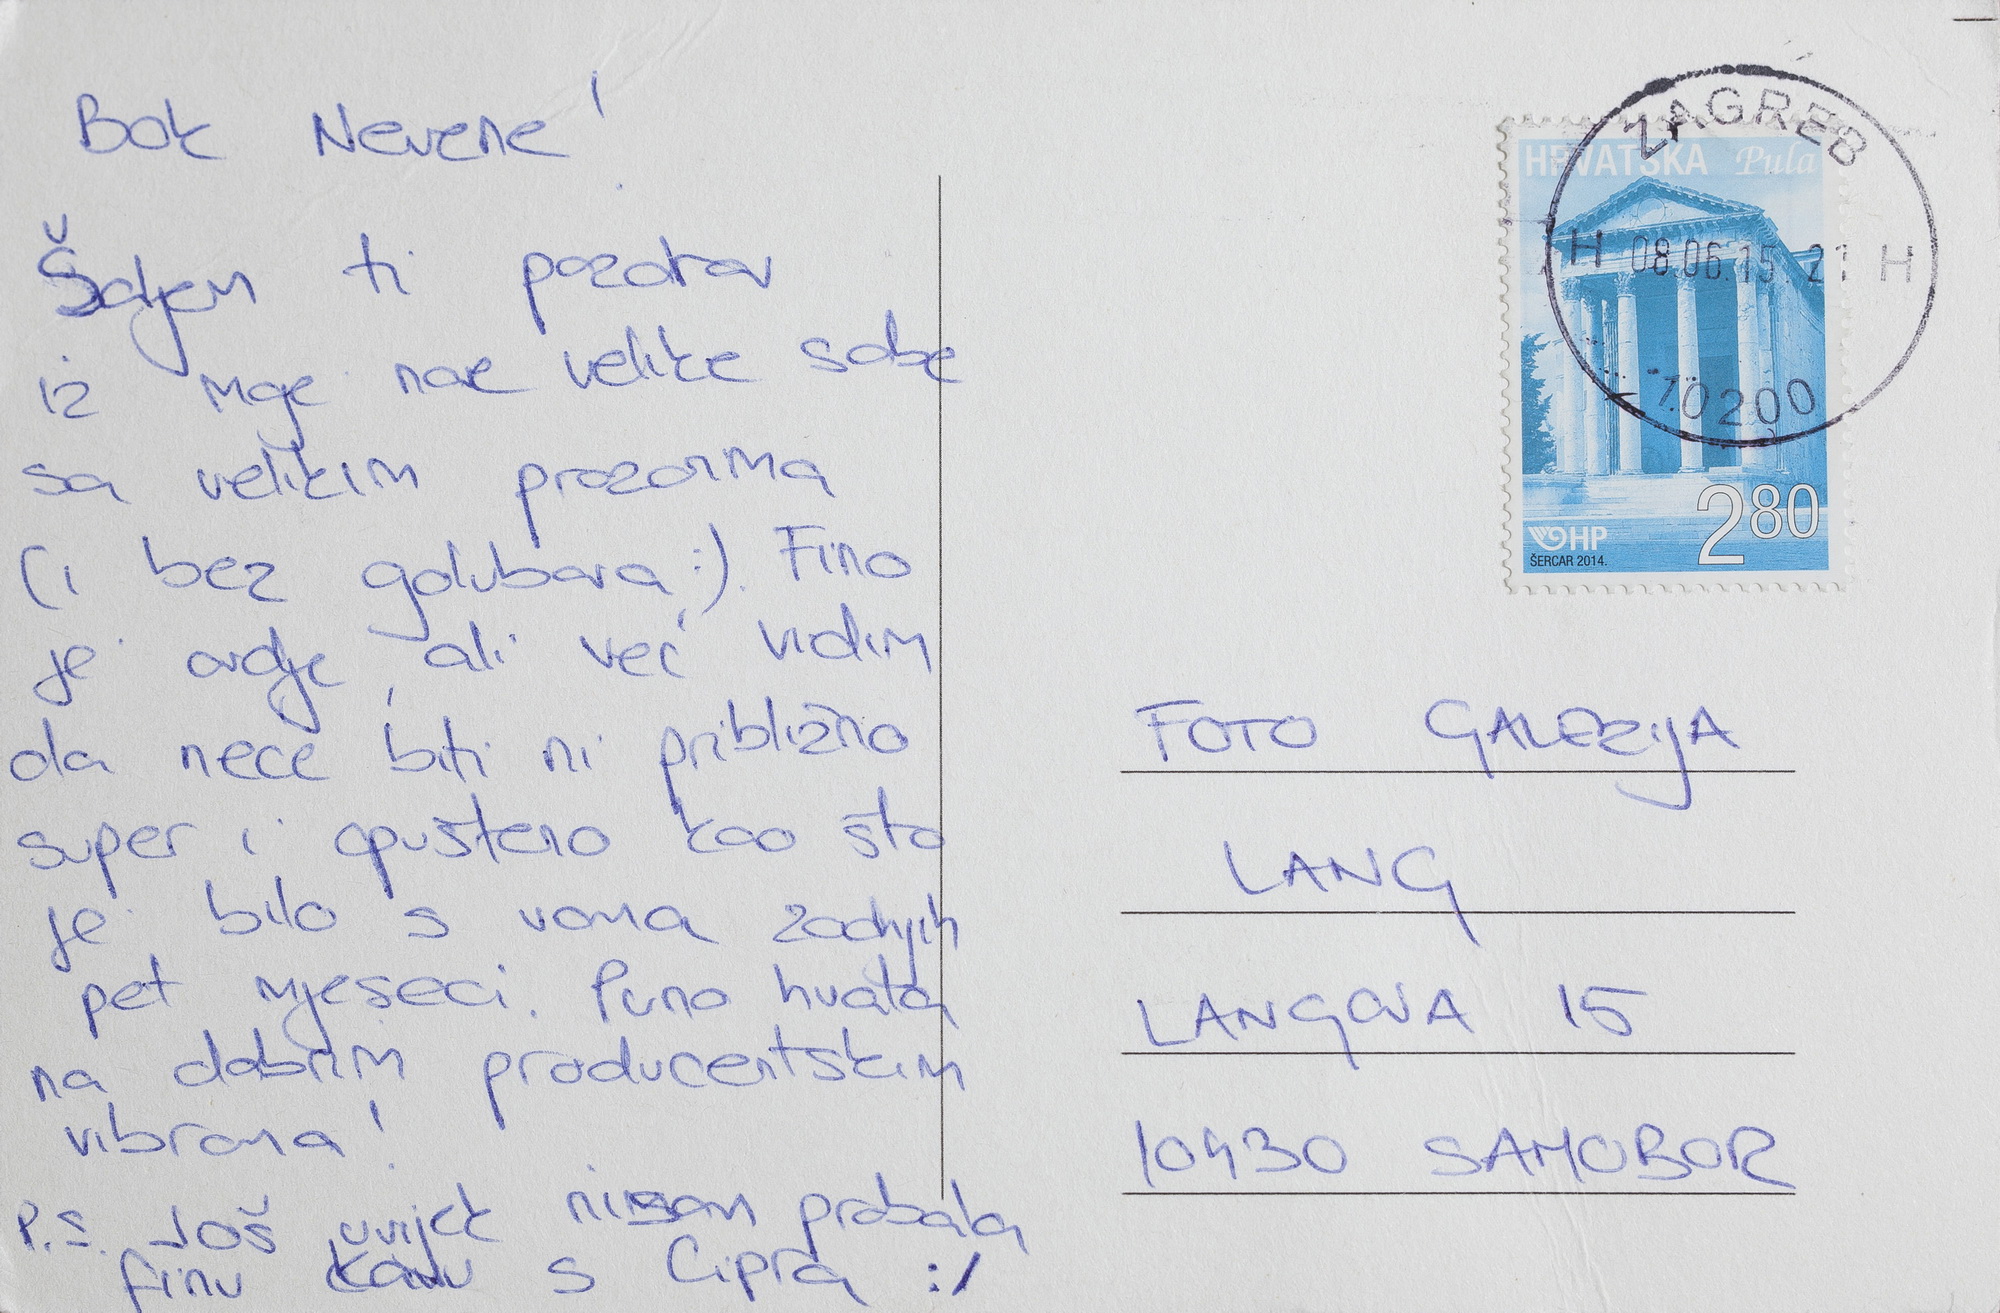 Bok Nevene!
Šaljem ti pozdrav
iz moje nove velike sobe
sa velikim prozorima
(i bez golubara :). Fino
je ovdje, ali već vidim
da neće biti ni približno
super i opušteno kao što
je bilo s vama zadnjih
pet mjeseci. Puno hvala
na dobrim producentskim
vibrama!
P.S. Još uvijek nisam probala
finu kavu s Cipra :/
HRVATSKA Pula
ZAGREB
H 08.06.15. 21 H
10200
2 80
HP
ŠERCAR 2014.
FOTO GALERIJA
LANG
LANGOVA 15
10430 SAMOBOR